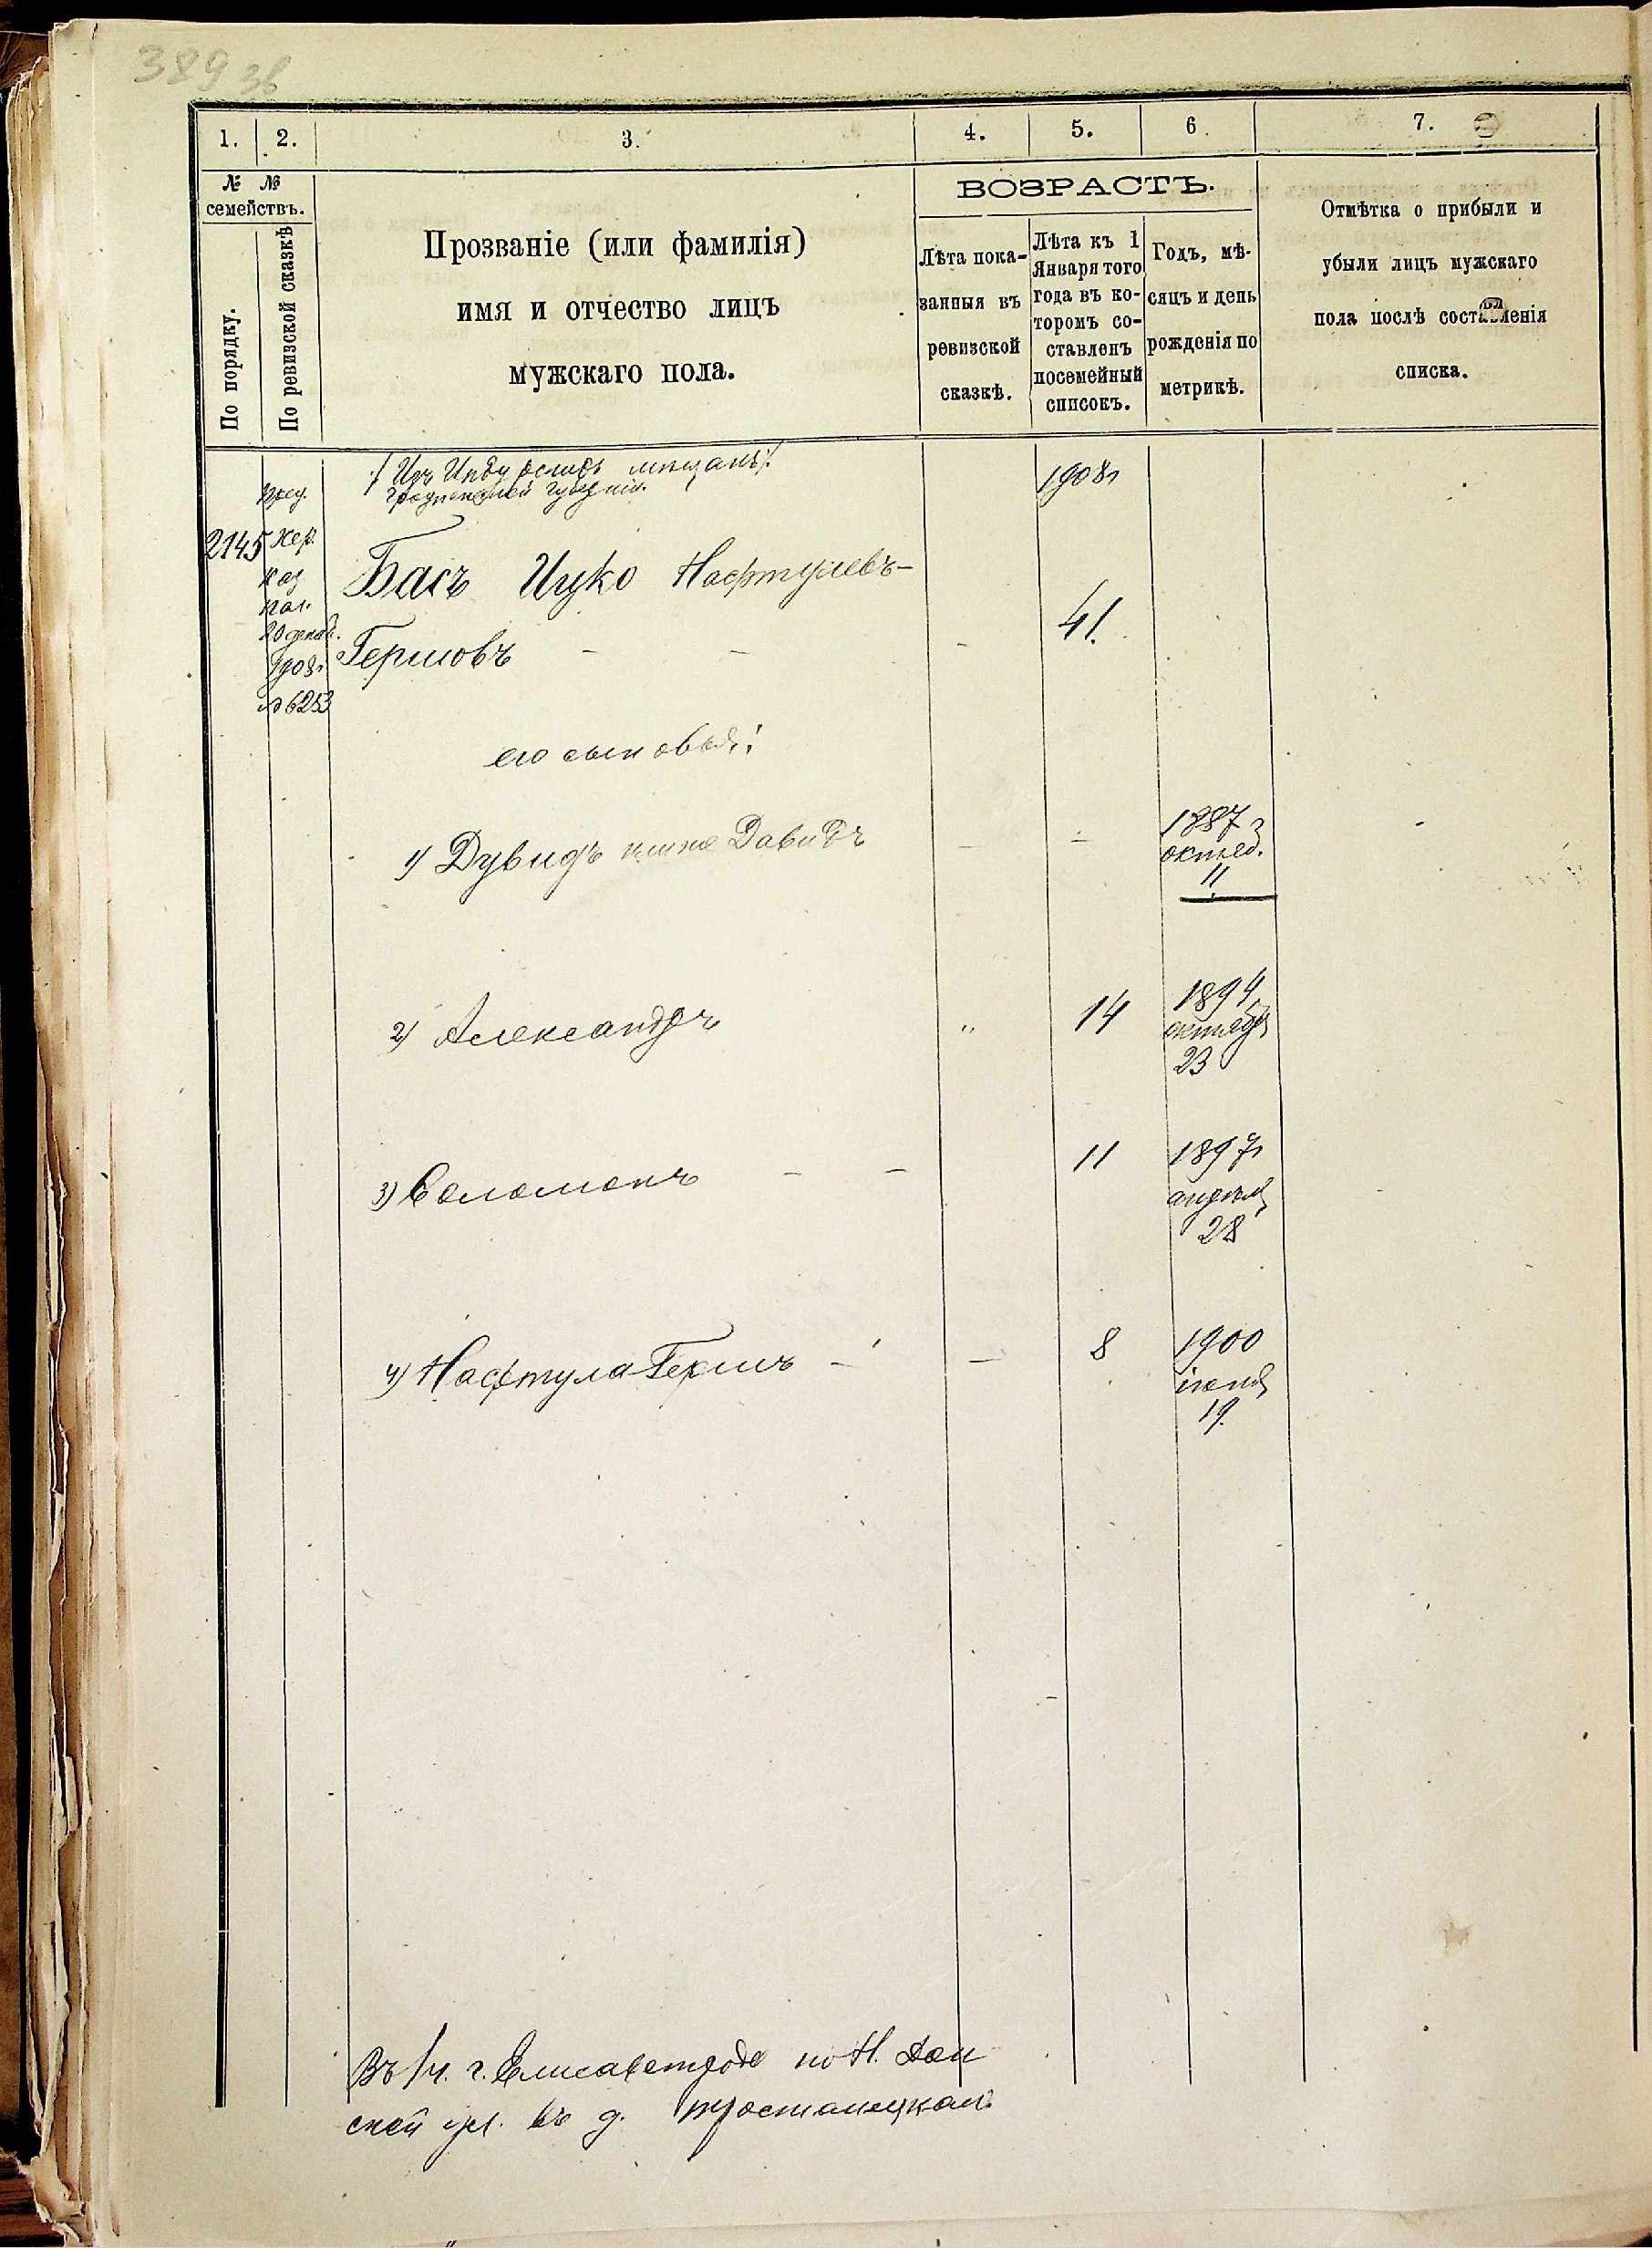 389 зв
1.
2.
3.
4.
5.
6.
7.
№ №
семействъ.
По порядку.
По ревизской сказкѣ
Прозваніе (или фамилія)
имя и отчество лицъ
мужскаго пола.
ВОЗРАСТЪ.
Лѣта пока-
занныя въ
ревизской
сказкѣ.
Лѣта къ 1
Января того
года въ ко-
торомъ со-
ставленъ
посемейный
списокъ.
Годъ, мѣ-
сяцъ и день
рожденія по
метрикѣ.
Отмѣтка о прибыли и
убыли лицъ мужскаго
пола послѣ составленія
списка.
Изъ мѣщанъ
Гродненской губерніи.
1908г
пред.
2145
Хер.
каз
пал.
20 декаб.
1908г
№ 6253
Басъ Ицко Нафтулевъ-
Гершовъ - -
-
41.
его сыновья:
1) Дувидъ или же Давидъ
-
-
1887 г
октяб.
11
2) Александръ
"
14
1894
октября
23
3) Соломонъ - -
11
1897г
апрѣля
28
4) Нафтула-Гершъ -
-
8
1900
іюня
19.
Въ 1 ч. г. Елисаветграда по Н. Дон
ской ул. въ д. Тростанецкаго